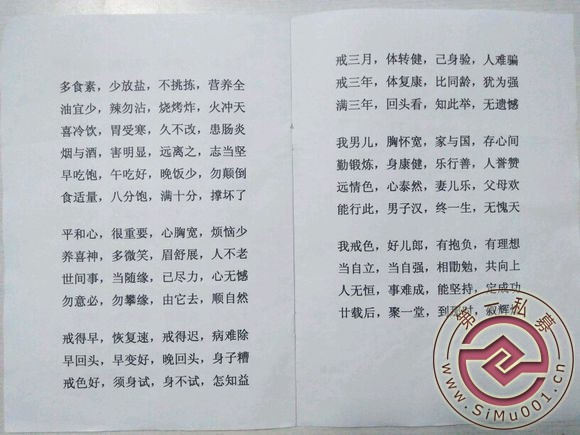 多食素，少放盐，不挑拣，营养全
油宜少，辣勿沾，烧烤炸，火冲天
喜冷饮，胃受寒，久不改，患肠炎
烟与酒，害明显，远离之，志当坚
早吃饱，午吃好，晚饭少，勿颠倒
食适量，八分饱，满十分，撑坏了
平和心，很重要，心胸宽，烦恼少
养喜神，多微笑，眉舒展，人不老
世间事，当随缘，已尽力，心无憾
勿意必，勿攀缘，由它去，顺自然
戒得早，恢复速，戒得迟，病难除
早回头，早变好，晚回头，身子糟
戒色好，须身试，身不试，怎知益
戒三月，体转健，己身验，人难骗
戒三年，体复康，比同龄，犹为强
满三年，回头看，知此举，无遗憾
我男儿，胸怀宽，家与国，存心间
勤锻炼，身康健，乐行善，人誉赞
远情色，心泰然，妻儿乐，父母欢
能行此，男子汉，终一生，无愧天
我戒色，好儿郎，有抱负，有理想
当自立，当自强，相勖勉，共向上
人无恒，事难成，能坚持，定成功
廿载后，聚一堂，到那时，叙辉
第一私募
www.SiMu001.cn